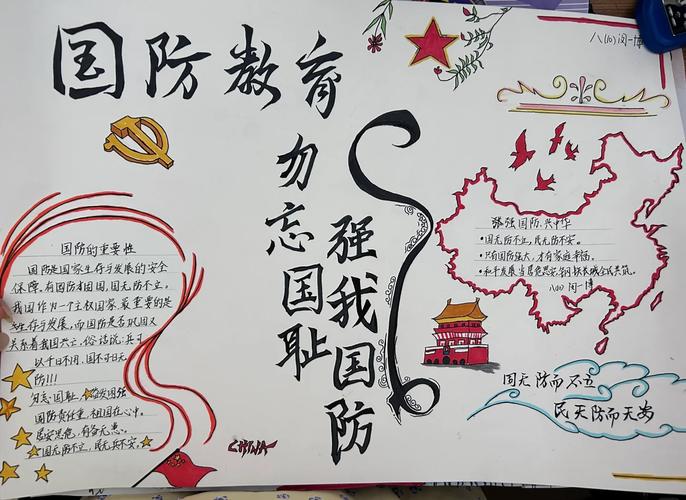 国防教育
八(10)闵一博
勿忘国耻
强我国防
国防的重要性
国防是国家生存与发展的安全
保障,有国防才有国,国无防不立,
我国作为一个主权国家,最重要的是
生存与发展,而国防是否巩固又
关系着我国兴亡,俗话说:兵可
以千日不用,国不可日无
防!!!
勿忘国耻,奋发图强
国防责任重,祖国在心中。
居安思危,有备无患。
国无防不立,民无兵不安。
CHINA
强国防,兴中华
•国无防不立,民无防不安。
•只有国防强大,才有家庭幸福。
•和平发展当居危思安,钢铁长城全民共筑。
八(10)闵一博
国无防而不立
民无防而不安